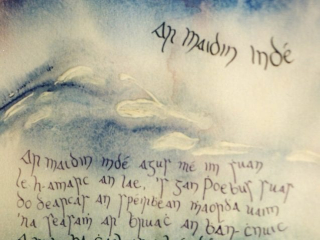 Ar maidin indé
Ar maidin indé agus mé im shuan
le h-amarc an lae, 's gan Poebus shuas
do dearcas an spéirbean maorda uaim
'na seasam ar bruac an bán-cnuic